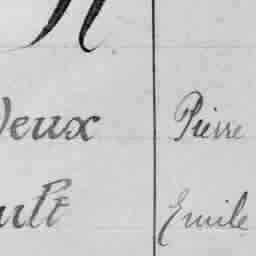 eux Pierre
ult Emile